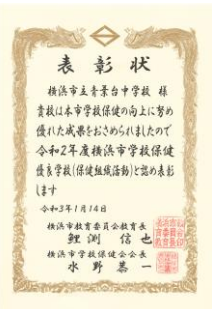 表彰状
横浜市立青葉台中学校 様
貴校は本市学校保健の向上に努め
優れた成果をおさめられましたので
令和2年度横浜市学校保健
優良学校(保健組織活動)と認め表彰
します
令和3年1月14日
横浜市教育委員会教育長
鯉渕 信也
横浜市学校保健会会長
水野 恭一